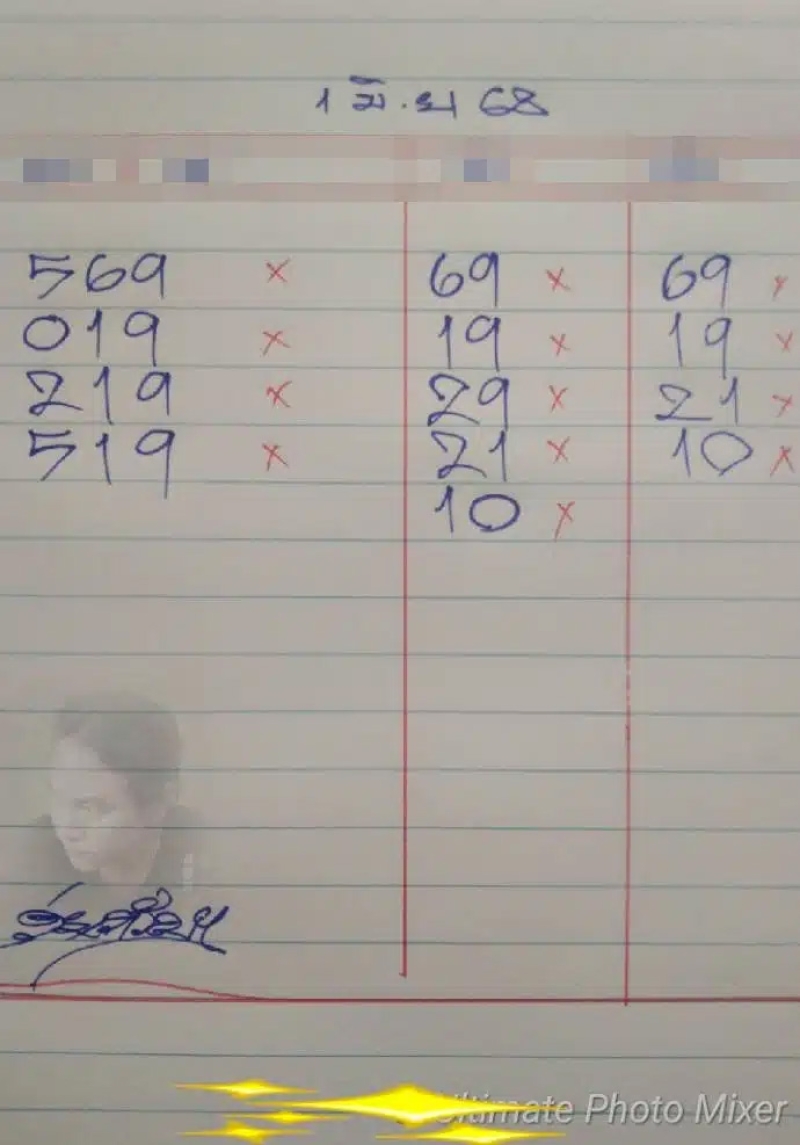 1 มิ.ย 68
569 × 69 × 69 ×
019 × 19 × 19 ×
219 × 29 × 21 ×
519 × 21 × 10 ×
10 ×
Ultimate Photo Mixer